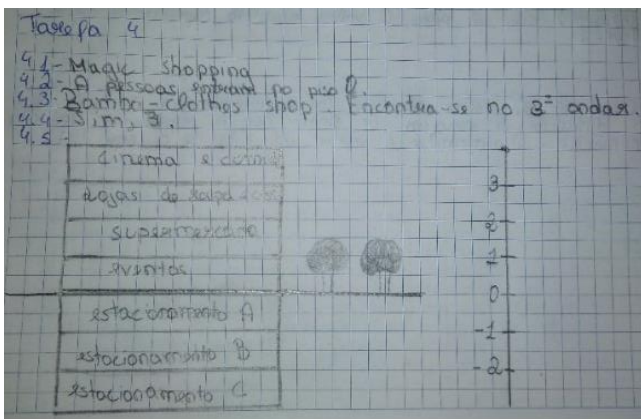 Tarefa 4
4.1 - Magic shopping
4.2 - A pessoas entram no piso 0.
4.3 - Bambo - clothes shop. Encontra-se no 3º andar.
4.4 - Sim, 3.
4.5 -
cinema e
Lojas de
supermercado
eventos
estacionamento A
estacionamento B
estacionamento C
3
2
1
0
-1
-2